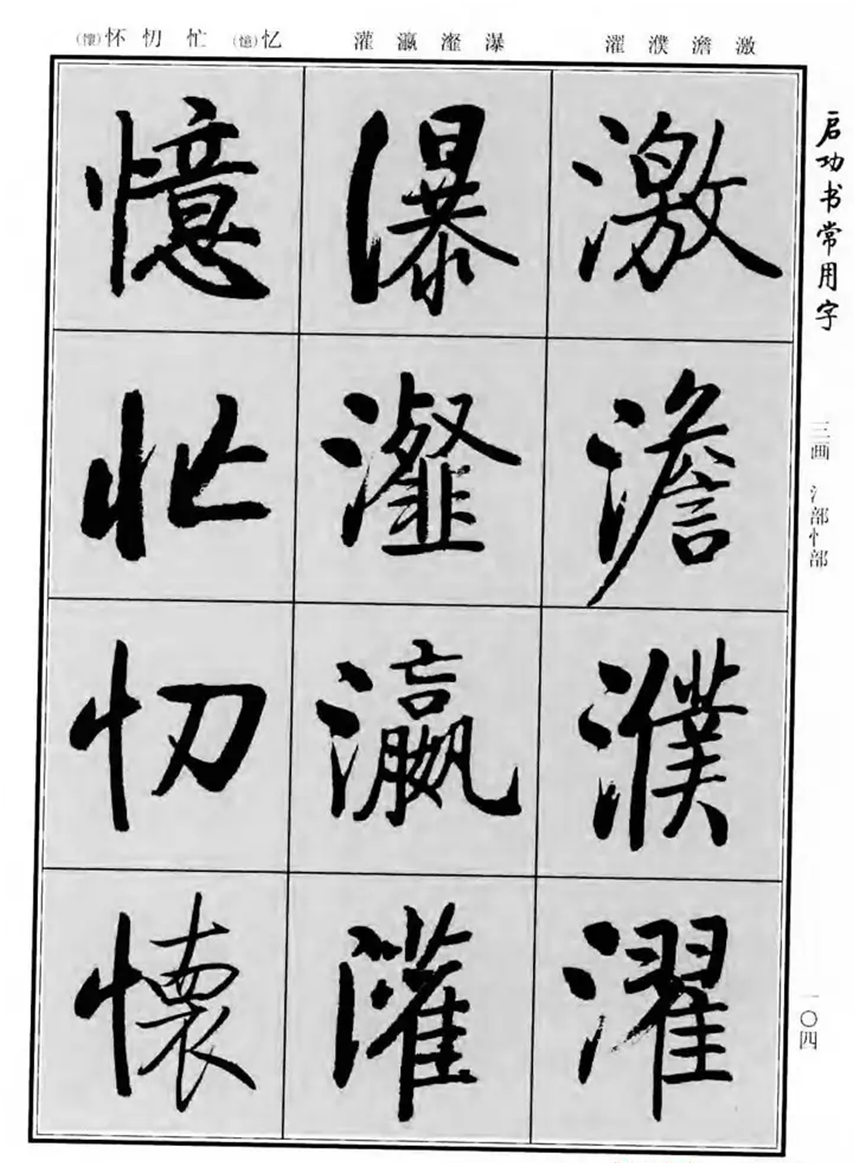 激 澹 濮 濯
瀑 瀣 瀛 灌
忆(憶) 忙 忉 怀(懷)
启功书常用字
三画 氵部忄部
一〇四
激澹濮濯
瀑瀣瀛灌
憶忙忉懷